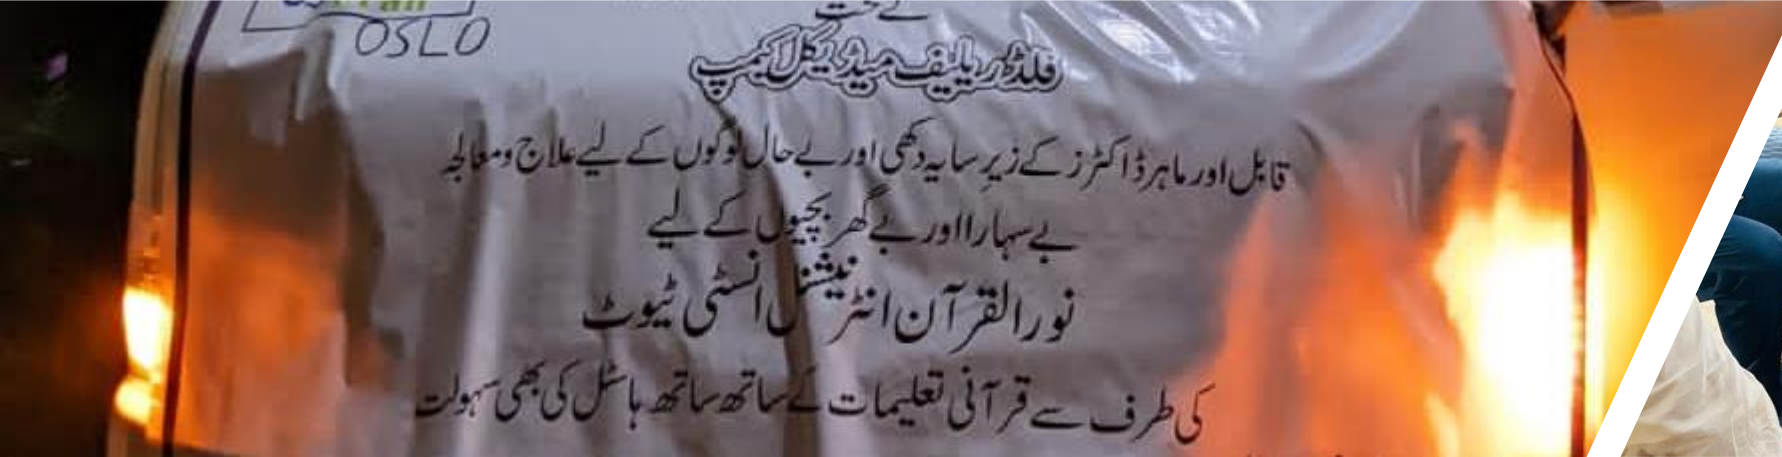 OSLO
کے تحت
فلڈ ریلیف میڈیکل کیمپ
قابل اور ماہر ڈاکٹرز کے زیرِ سایہ دکھی اور بے حال لوگوں کے لیے علاج و معالجہ
بے سہارا اور بے گھر بچیوں کے لیے
نور القرآن انٹرنیشنل انسٹی ٹیوٹ
کی طرف سے قرآنی تعلیمات کے ساتھ ساتھ ہاسٹل کی بھی سہولت